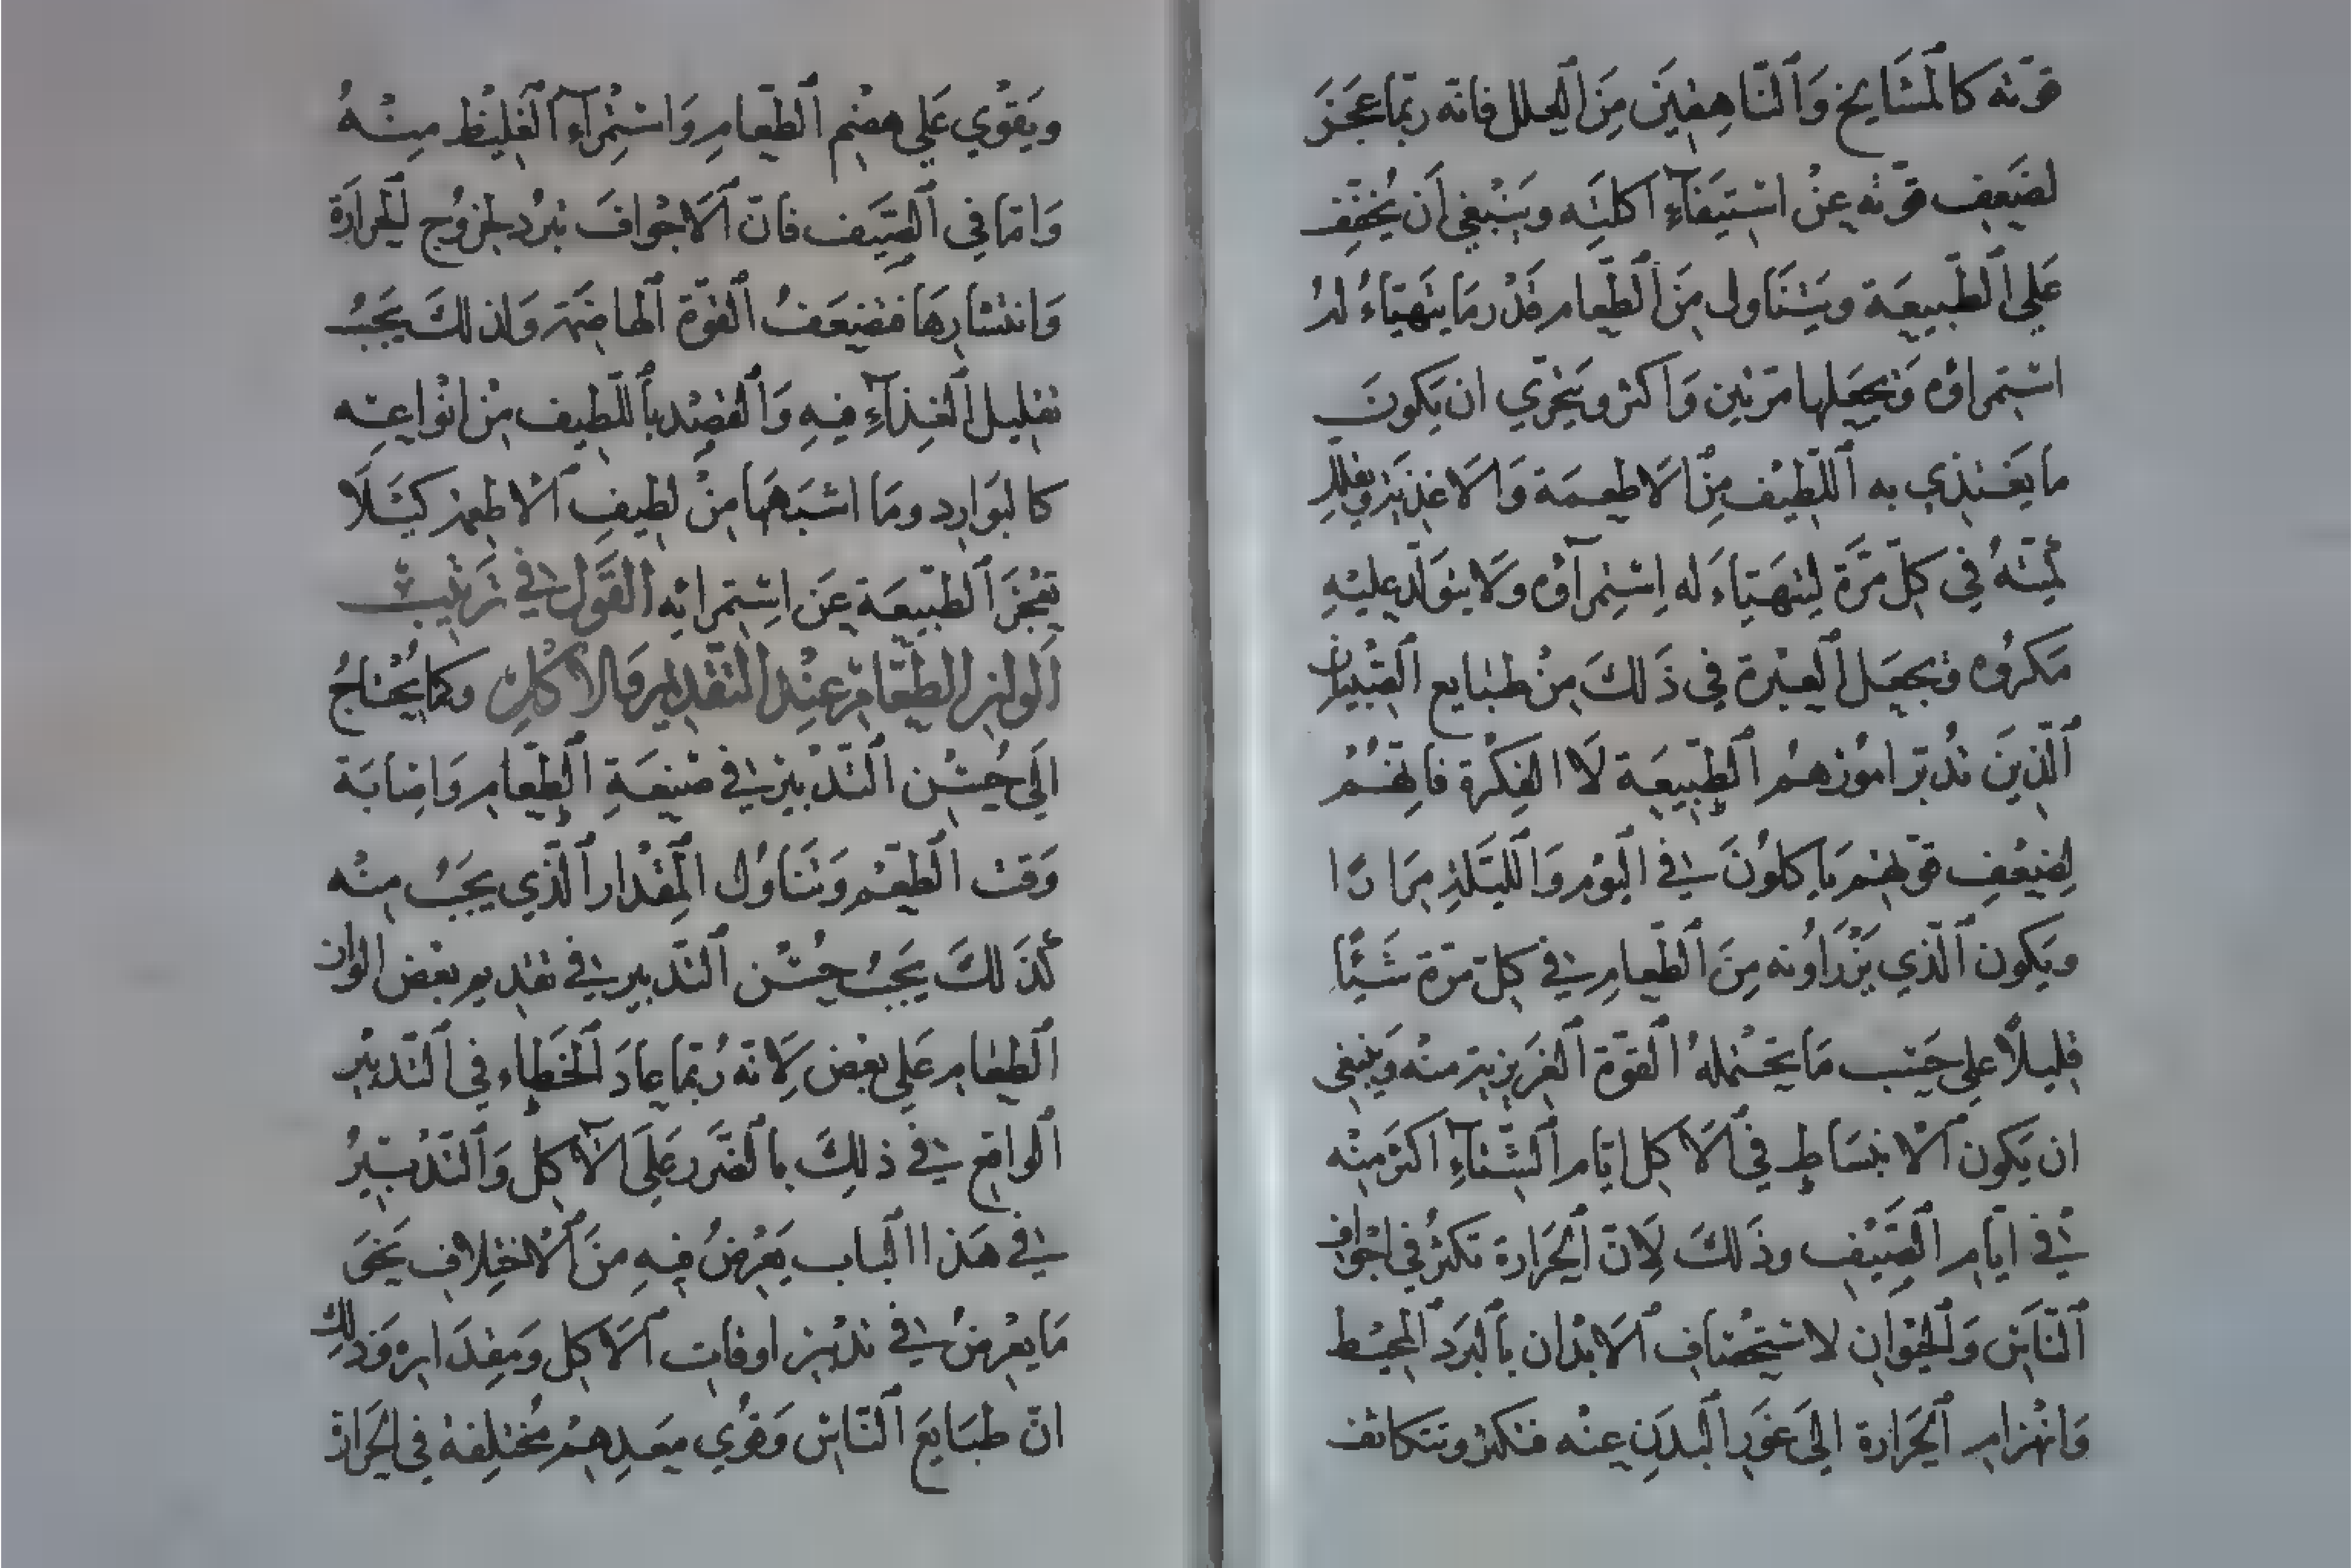 قوّته كالمشَايخ وَالنّاهِضِينَ مِنَ العلل فانه ربّما عجَزَ
لضَعِف قوّته عنْ اسْتيفآءِ اكلته وينْبغي أن يُخفّف
عَلي الطّبيعَة ويتناول مِنَ الطّعام قدْر مَا يتهيّاءُ لهُ
استمراؤه وَيجعَلها مرّتين وَاكثر ويتحرّي ان يَكونَ
ما يَغتذي به اللّطيف مِنَ الاطعمَة وَالاغذيَة ويقلّل
كميّته في كلّ مرَّة ليتهَيّاءَ له اِسْتِمرآؤه وَلا يتوَلّد عليْهِ
مَكروُه ويجعَل العبْرة في ذَلكَ مِنْ طبَايع الصّبيان
الّذينَ تدُبّر اموُرهمُ الطّبيعَة لَا الفِكرْة فانهّمُ
لِضعْفِ قوّتهم يَاكلوُنَ في اليوْم وَاللّيلَة مِرَارًا
ويَكون الّذي يَزْرَاوُنه مِنَ الطّعام في كلّ مرّة شَيئًا
قليلًا علي حَسَب مَا يحتمله القوّة الغَريزية منْه وَينبغي
ان يَكون الانبسَاط في الَاكل ايّام الشّتآءِ اكثرَ منْه
في ايّام الصَّيْف وذَلكَ لِانّ الحَرارة تكثرُ في اجْواف
النّاسِ وَالحيَوان لاستحْصَاف الابْدان بالبَردِ المحيْط
وَانهْزام الحَرَارة الىَ غَوَر البدَنِ عنْه فتكثر وتتكاثف
ويَقوْي عَلي هضْم الطّعام وَاسْتِمْرآءِ الغليْظ مِنْهُ
وَامّا في الصَّيف فانّ الاجْوافَ تبرُد لخروُج الحرَارَة
وَانتشارهَا فتضعَفُ القوّة الهاضَمة وَلذلكَ يَجَبُ
تقليل الغِذآءِ فيهِ وَالقصْد باللّطيف مِنْ انْواعِه
كالبَوارد ومَا اشبَههَا مِنْ لطيفِ الاطعمة كيَلَا
تعْجَزَ الطّبيعَة عَن اِسْتمرائه القَول في ترَتيب
الَوان الطّعَامْ عنْد التقْديم وَالاكل وكما يُحْتاجُ
الَي حُسْن التّدْبير في صَنعَةِ الطّعام وَاصَابَة
وَقت الطّعْم وَتناوُل المِقْدار الّذي يجَبُ منْه
كذَلكَ يَجَبُ حُسْن التّدبير في تقديم بعْض الوان
الطعَام عَلي بعْض لِانّه رُبّما عادَ الخَطاء في التّدبيْر
الواقع في ذلِكَ بالضَّرر عَلَى الآكِل وَالتّدْبيْرُ
في هَذا الباب يَعْرِضُ فيهِ منَ الاختِلاف نَحْوَ
مَا يعْرِضُ في تدْبير اوقات الَاكل وَمقدَاره وَذلك
انّ طبَايعَ النّاسِ وَقوُي مِعَدِهِمْ مُختلِفة في الحَرَارة